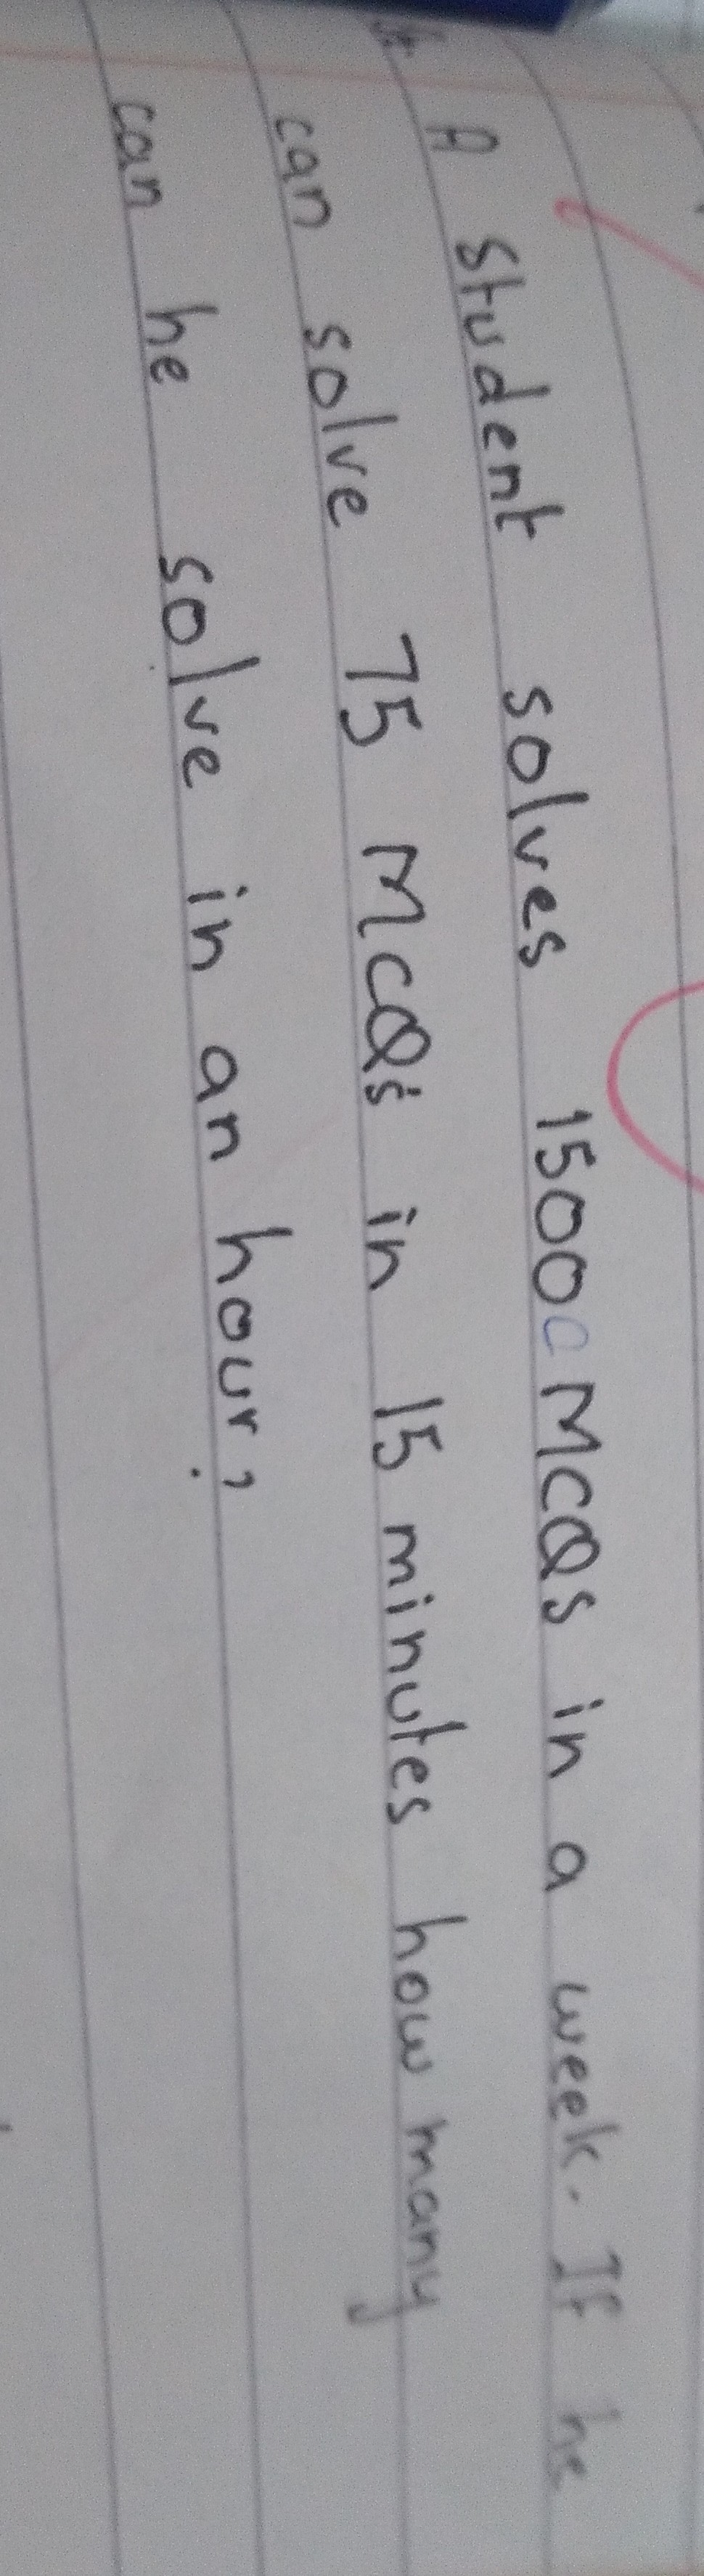 A student solves 15000 MCQs in a week. If he
can solve 75 MCQs in 15 minutes how many
can he solve in an hour?